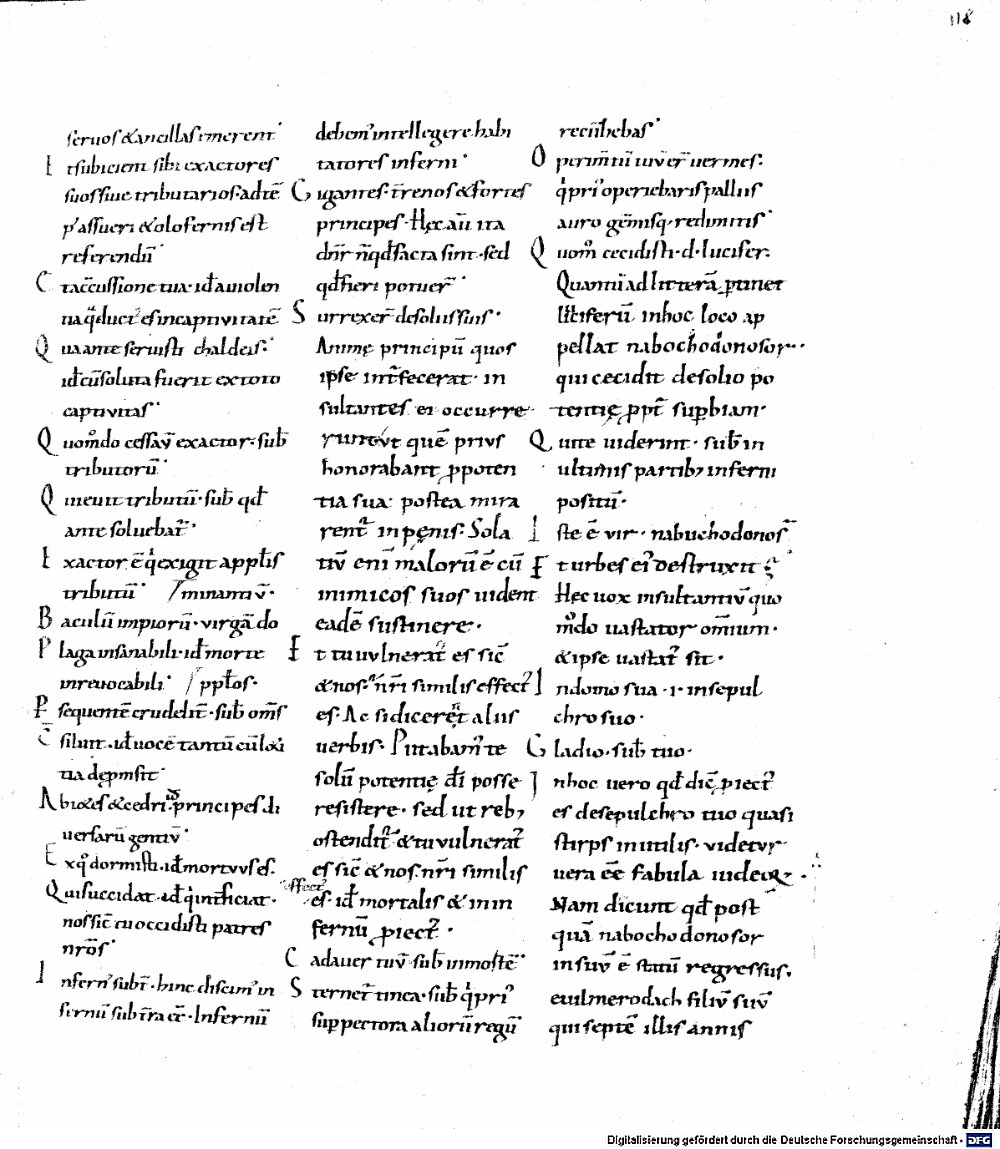 118
seruos &ancillas inerent.
Et subicient sibi exactores
suos siue tributarios. ad tẽ
p' assueri & olofernis est
referendũ.
C tac̃cussione tua. id̃ a uiolen
tia q̃ duct' es in captiuitatẽ
Qua ante seruisti chaldeis.
id̃ cũ soluta fuerit ex toto
captiuitas.
Quomͦdo cessauͭ exactor. sub̃
tributorũ.
Quieuit tributũ. sub̃ qd̃
ante soluebat̃.
Exactor ẽ qͥ exigit a pp̃lis
tributũ. /minantiũ.
Baculũ impiorũ. uirgã do
Plaga insanabili. id̃ morte
inreuocabili. /pp̃los.
Psequentẽ crudelit̃. sub̃ om̃s
siluit. id̃ uocẽ tantũ
tia dẽpmsit.
Abi&es & cedri. principes di
uersarũ gentiũ.
Ex qͦ dormisti. id̃ mortuus es.
Qui succidat. id̃ qͥ int̃ficiat.
nos sic̃ tu occidisti patres
nr̃os.
Infern' subt̃. hinc discim' in
fernũ sub t̃ra eẽ. Infernũ
debem' intellegere habi
tatores inferni.
Gigantes. t̃renos & fortes
principes. Hęc aũ ita
dn̄r ñ qd̃ facta sint. sed
qd̃ fieri potuer̃.
Surrexer̃ de solus suis.
Animę principũ quos
ipse int̃fecerat. in
sultantes ei occurre
runt que prius
honorabant p poten
tia sua. postea mira
rent̃ in pęnis. Sola
tiũ eni malorũ ẽ cũ
inimicos suos uident
eadẽ sustinere.
Et tu uulnerat̃ es sic̃
& nos. nr̃i similis effect'
es. Ac si diceret̃ aliis
uerbis. Putabam' te
solũ potentię di posse
resistere. sed ut reb;
ostendit̃ & tu uulnerat'
es sic̃ & nos. nr̃i similis
effect'
es. id̃ mortalis & in in
fernũ piect'.
Cadauer tuũ. sub̃
Sternet̃ tinea. sub̃ qͥ pri'
sup pectora aliorũ regũ
recũbebas.
Operim̃tũ tuũ er̃ uermes.
qͥ pri' operiebaris palliis
auro gẽmisq; redimitis.
Quom̃ cecidisti. d. lucifer.
Quantũ ad litterã ptinet
luciferũ in hoc loco ap
pellat nabochodonosor.
qui cecidit de solio po
tentię ppt̃ supbiam.
Qui te uiderint. sub̃ in
ultimis partib; inferni
positũ.
Iste ẽ uir. nabuchodonos̃
Et urbes ei' destruxit
Hęc uox insultantiũ quo
mͦdo uastator omium.
& ipse uastat' sit.
In domo sua. i. in sepul
chro suo.
Gladio. sub̃ tuo.
In hoc uero qd̃ dic̃ piect'
es de sepulchro tuo quasi
stirps inutilis. uidetur
uera eẽ fabula iudeoꝝ.
Nam dicunt qd̃ post
quã nabochodonosor
in suũ ẽ statũ regressus.
euilmerodach filiũ suũ
qui septẽ illis annis
Digitalisierung gefördert durch die Deutsche Forschungsgemeinschaft - DFG